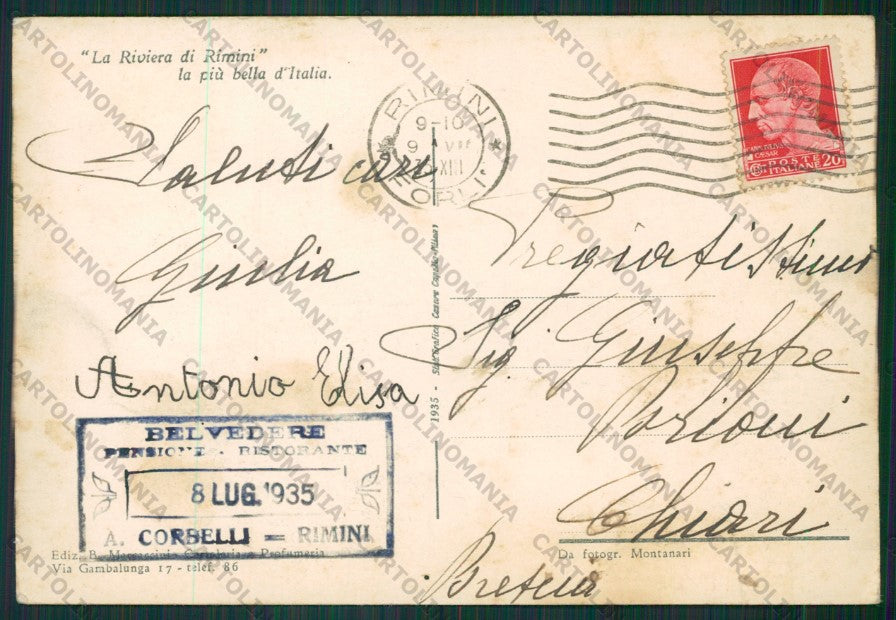 "La Riviera di Rimini"
la più bella d'Italia.
RIMINI
9-10
9 VII
XIII
FORLI'
POSTE
ITALIANE 20
Saluti cari
Giulia
Antonio Elisa
BELVEDERE
PENSIONE - RISTORANTE
8 LUG. 1935
A. CORBELLI = RIMINI
Ediz. B. Cartoleria e Profumeria
Via Gambalunga 17 - telef. 86
1935 -
Pregiatissimo
Sig. Giuseppe
Chiari
Brescia
Da fotogr. Montanari
CARTOLINOMANIA